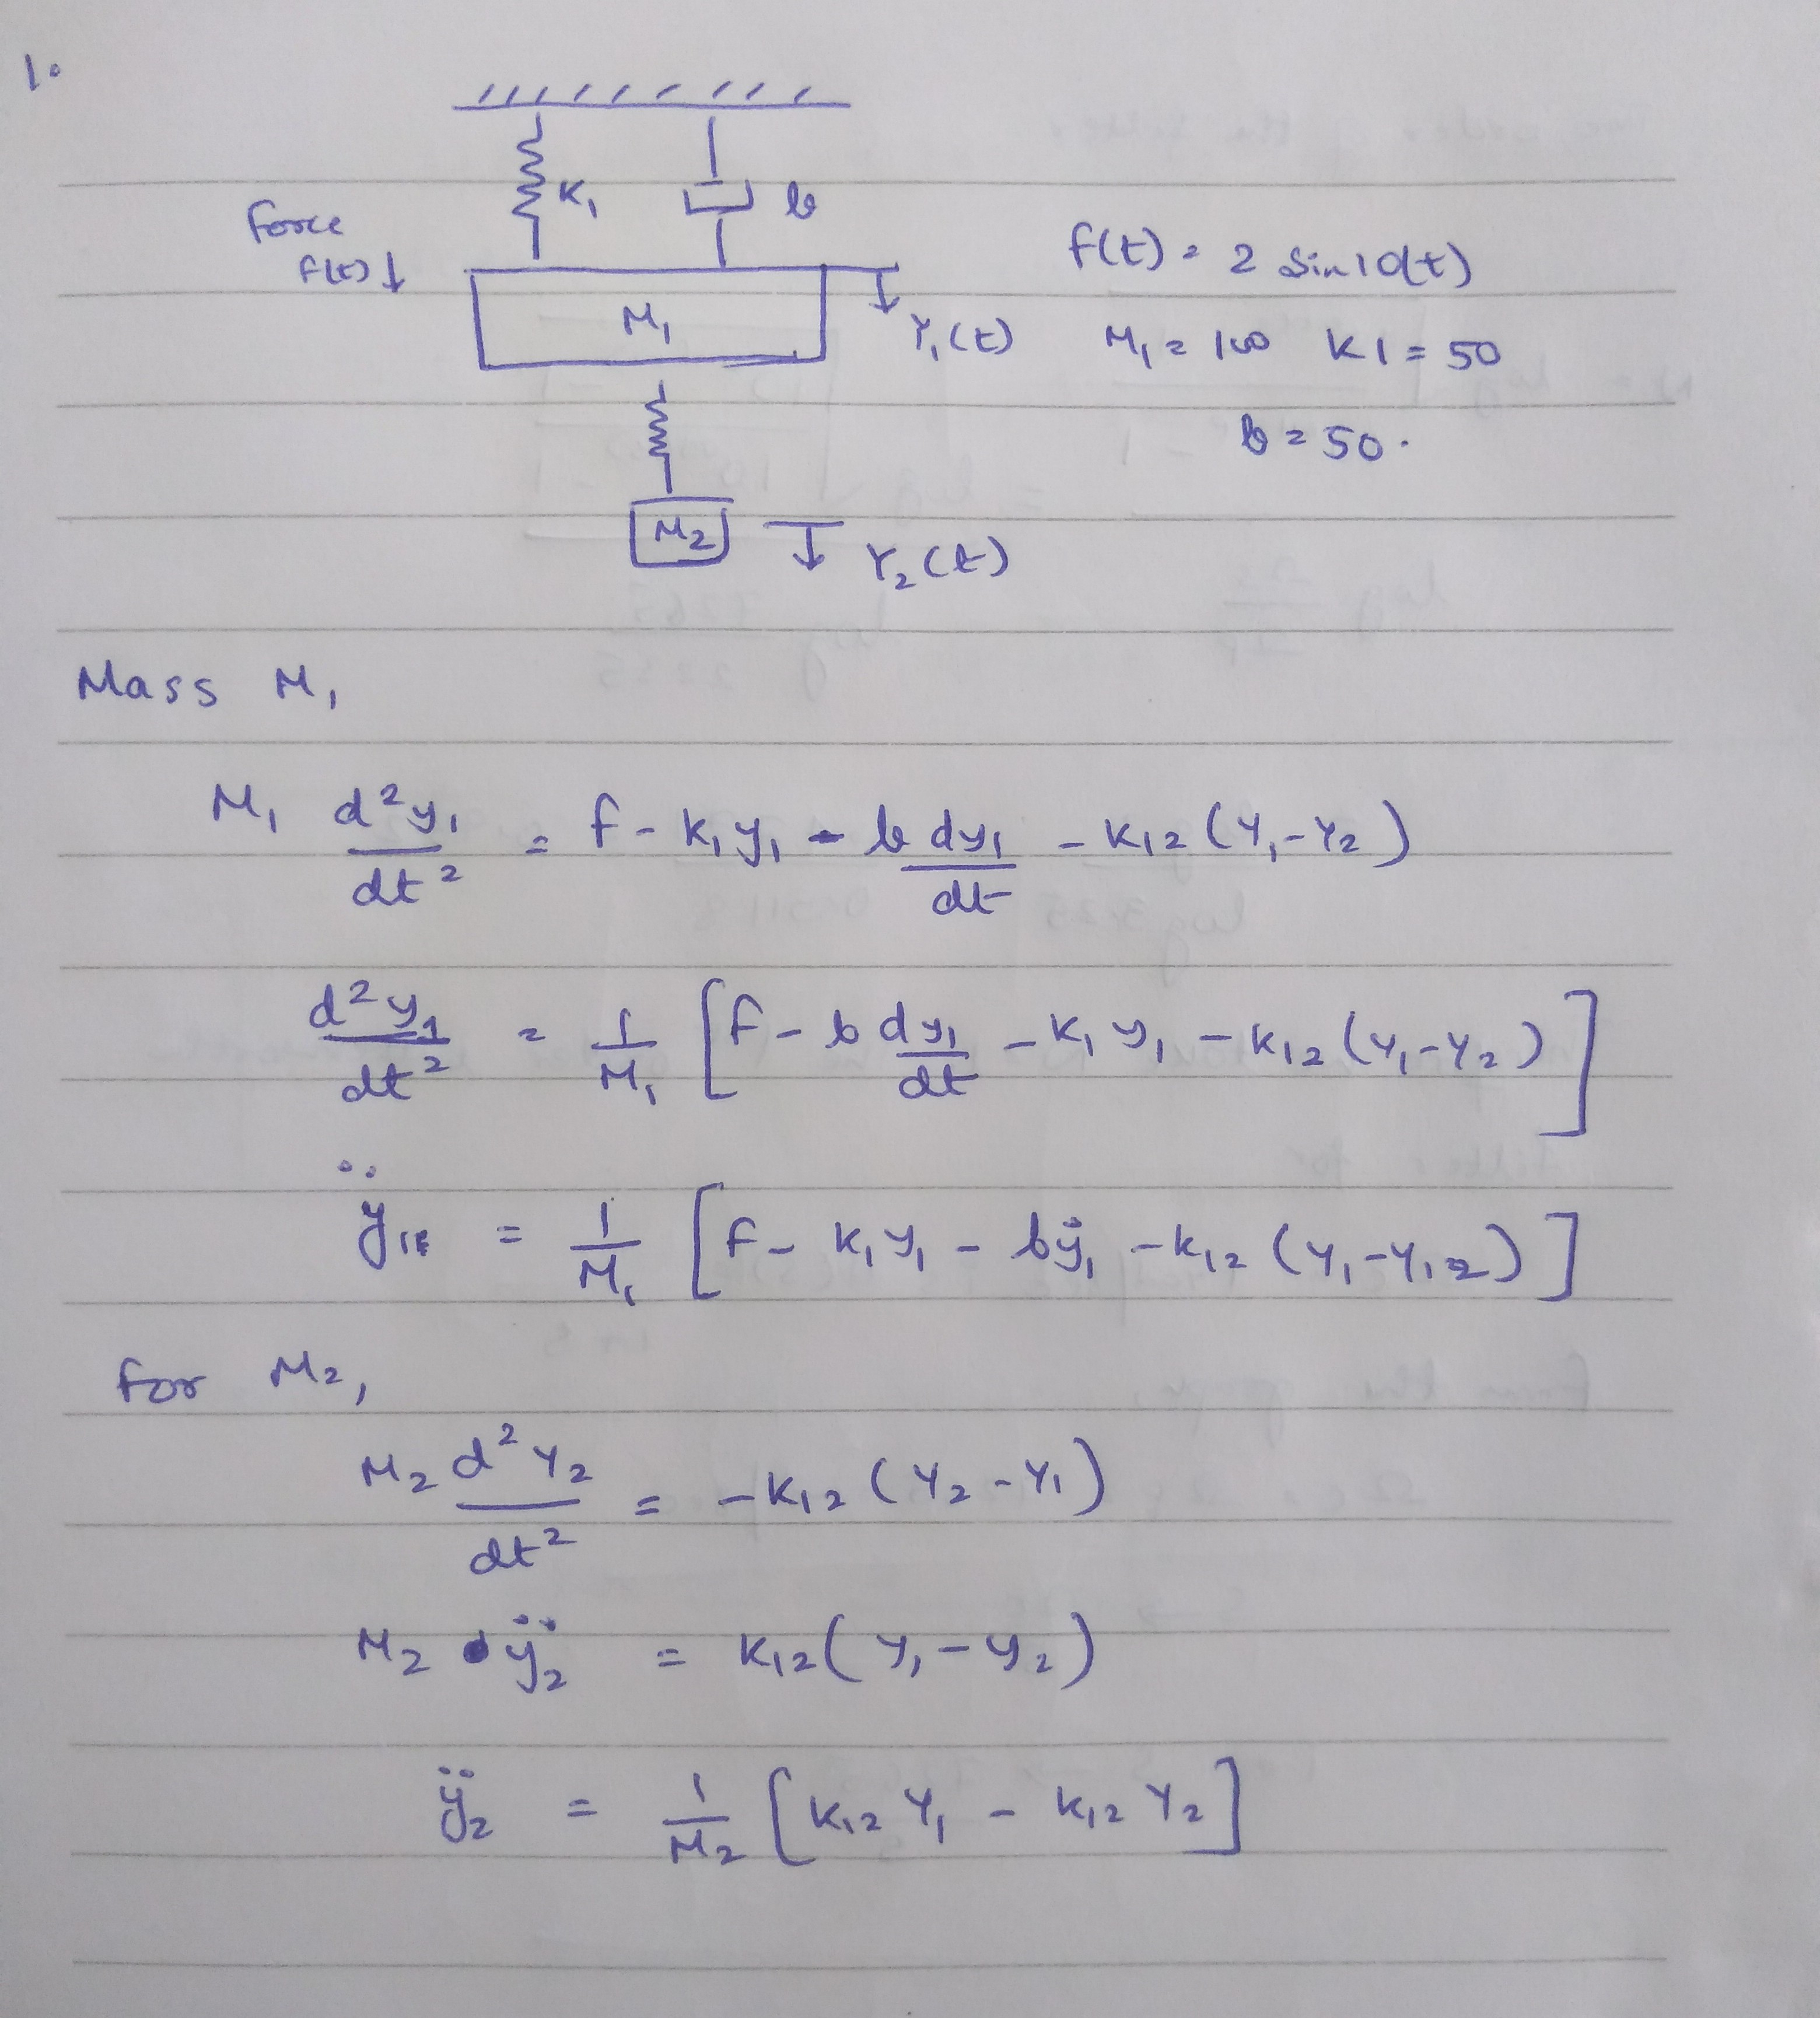 1.
K₁ b
Force
f(t) ↓
f(t) = 2 sin10(t)
M₁
Y₁(t)
M₁ = 100 K1 = 50
b = 50.
M₂
Y₂(t)
Mass M₁
M₁ d²y₁/dt² = f - K₁y₁ - b dy₁/dt - K₁₂(Y₁-Y₂)
d²y₁/dt² = 1/M₁ [f - b dy₁/dt - K₁y₁ - K₁₂(Y₁-Y₂)]
ÿ₁ = 1/M₁ [f - K₁y₁ - bẏ₁ - K₁₂(Y₁-Y₁₂)]
For M₂,
M₂ d²Y₂/dt² = -K₁₂(Y₂-Y₁)
M₂ ÿ₂ = K₁₂(y₁-y₂)
ÿ₂ = 1/M₂ [K₁₂Y₁ - K₁₂Y₂]